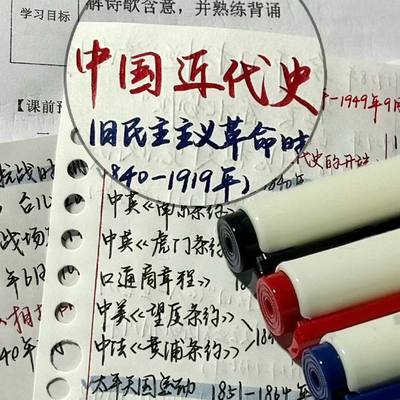 学习目标
解诗歌含意，并熟练背诵
【课前预
中国近代史
-1949年9月
旧民主主义革命时
代史的开端
1840-1919年）
1840年
抗战时
战场
年6日
相
40年
中英《南京条约》
中英《虎门条约》
口通商章程》
中美《望厦条约》
中法《黄浦条约》
太平天国运动 1851-1864年